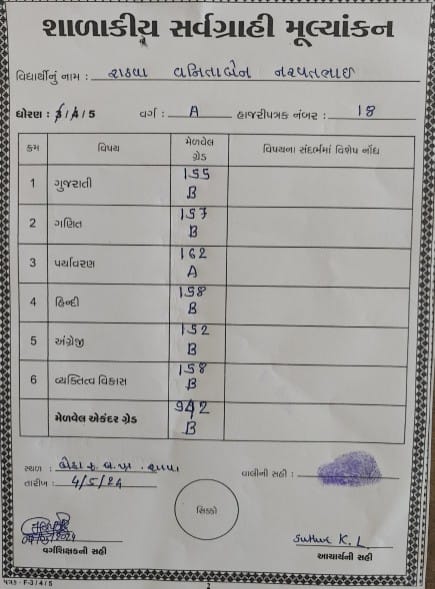 શાળાકીય સર્વગ્રાહી મૂલ્યાંકન
વિદ્યાર્થીનું નામ : રાઠવા વનિતાબેન નરપતભાઈ
ધોરણ : 3 / 4 / 5 વર્ગ : A હાજરીપત્રક નંબર : 18
ક્રમ વિષય મેળવેલ ગ્રેડ વિષયના સંદર્ભમાં વિશેષ નોંધ
1 ગુજરાતી 155 B
2 ગણિત 157 B
3 પર્યાવરણ 162 A
4 હિન્દી 158 B
5 અંગ્રેજી 152 B
6 વ્યક્તિત્વ વિકાસ 158 B
મેળવેલ એકંદર ગ્રેડ 942 B
સ્થળ :
વાલીની સહી :
તારીખ : 4/5/24
સિક્કો
Suthar K. L.
વર્ગશિક્ષકની સહી
આચાર્યની સહી
પત્રક - F-3 / 4 / 5
2